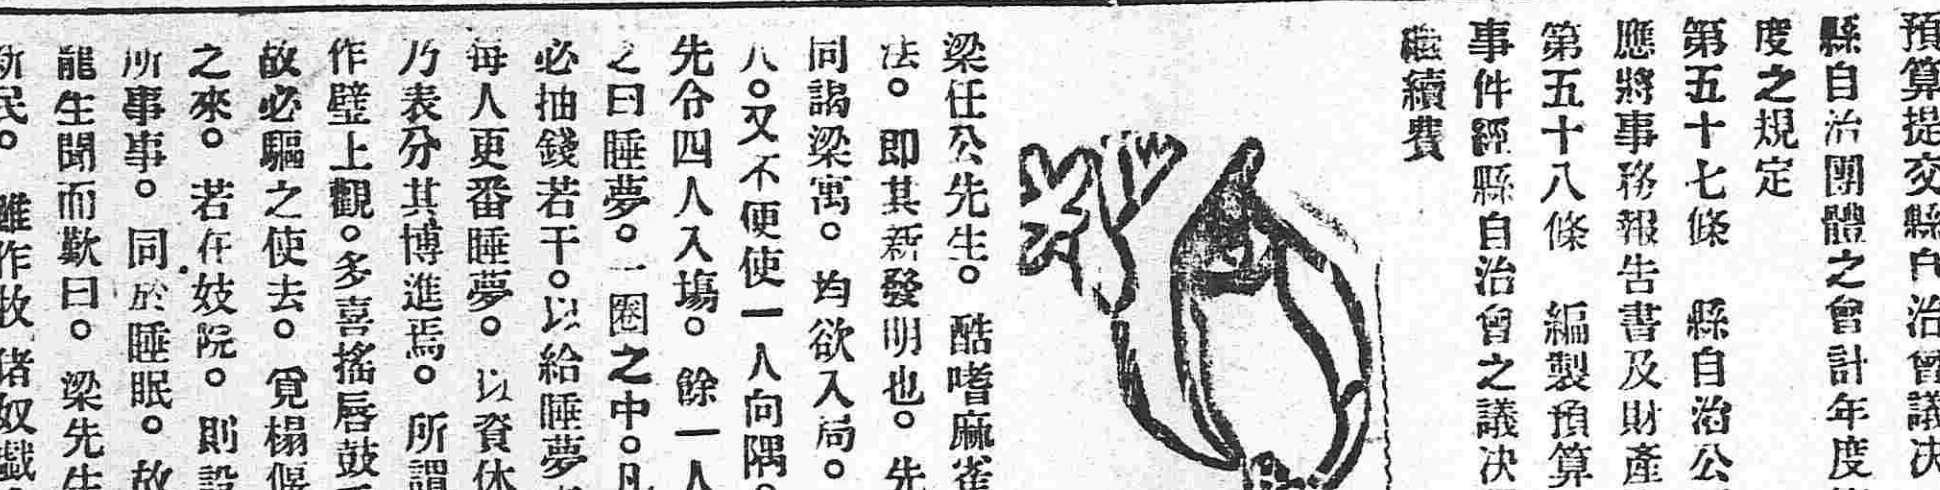 預算提交縣自治會議決
縣自治團體之會計年度
度之規定
第五十七條　縣自治公
應將事務報告書及財產
第五十八條　編製預算
事件經縣自治會之議決
繼續費
梁任公先生。酷嗜麻雀
法。卽其新發明也。先
同謁梁寓。均欲入局。
人。又不便使一人向隅。
先令四人入塲。餘一人
之曰睡夢。一圈之中。凡
必抽錢若干。以給睡夢
每人更番睡夢。以資休
乃表分其博進焉。所謂
作壁上觀。多喜搖唇鼓
故必驅之使去。覓榻偃
之來。若在妓院。則設
所事事。同於睡眠。故
龍生聞而歎曰。梁先生
新民。雖作牧猪奴戲